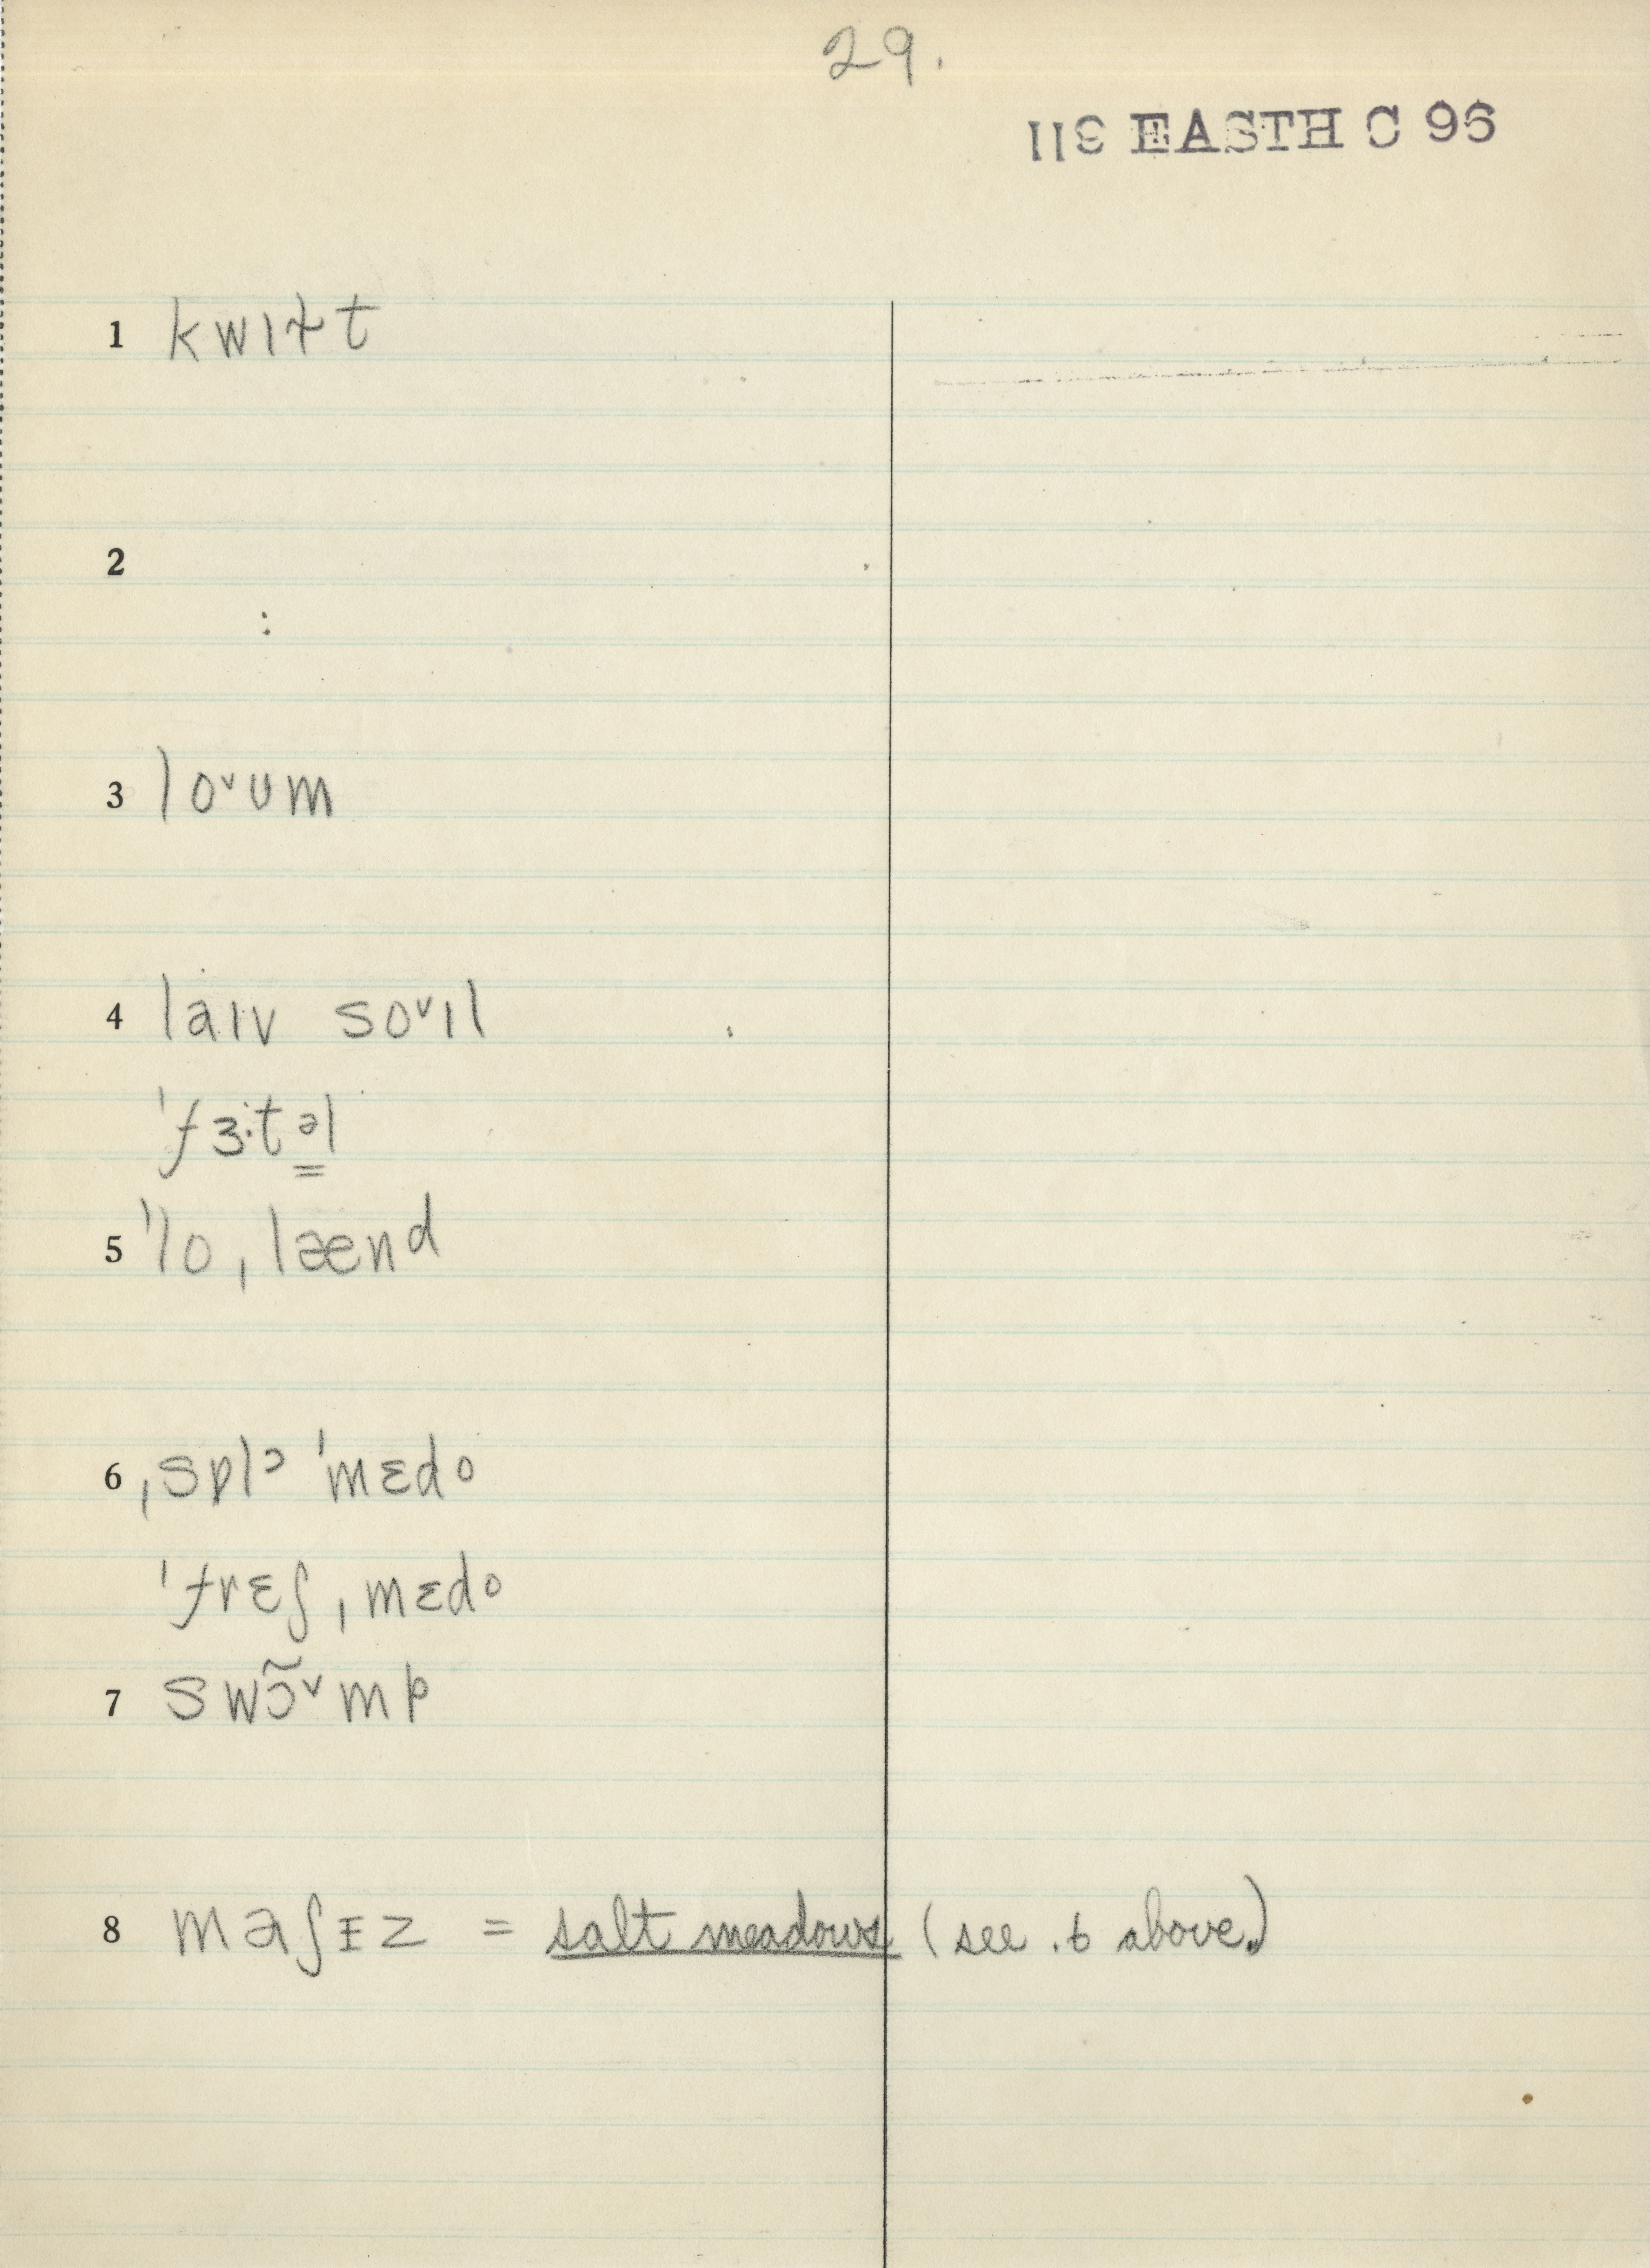 29.
113 EASTH C 96
1 kwɪɫt
2
3 lo˅ʊm
4 laɪv so˅ɪl
ˈfɜ·təl
5 ˈloˌlænd
6 ˌsɒlᵊ ˈmɛdo
ˈfrɛʃˌmɛdo
7 swɔ̃˅mp
8 maʃɪz = salt meadows (see .6 above.)